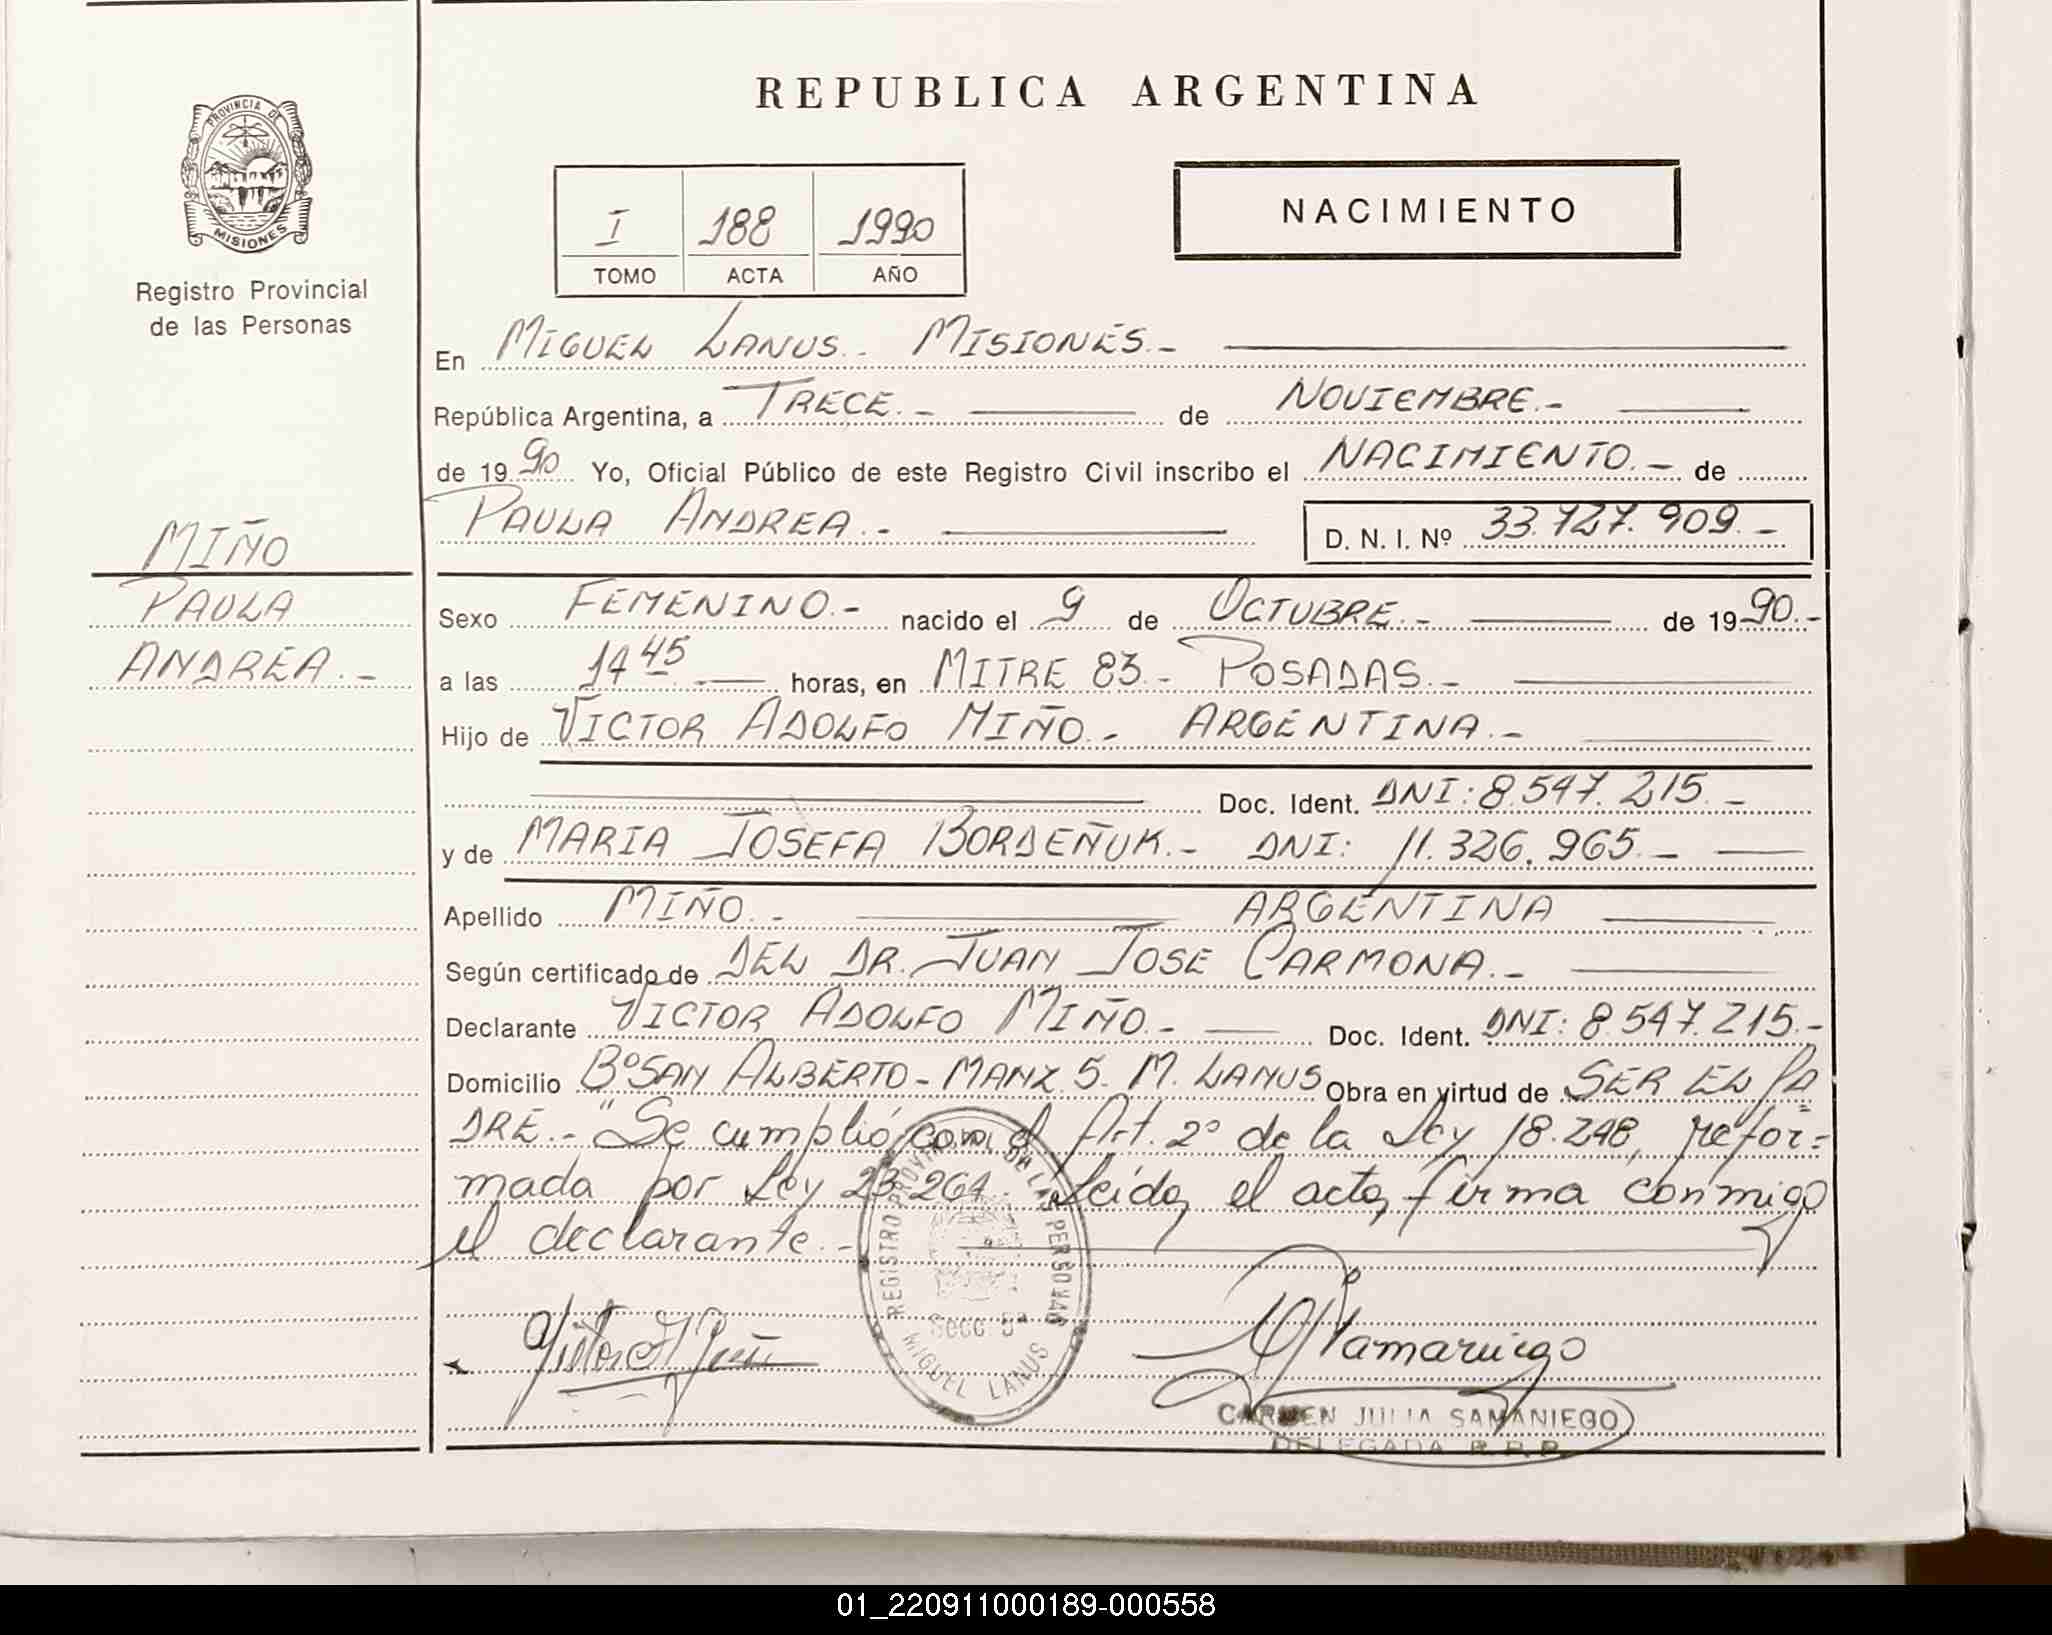 REPUBLICA ARGENTINA
PROVINCIA DE
MISIONES
Registro Provincial
de las Personas
I 188 1990
TOMO ACTA AÑO
NACIMIENTO
En MIGUEL LANUS.- MISIONES.-
República Argentina, a TRECE.- de NOVIEMBRE.-
de 1990 Yo, Oficial Público de este Registro Civil inscribo el NACIMIENTO.- de
PAULA ANDREA.- D. N. I. Nº 33.727.909.-
MIÑO
PAULA
ANDREA.-
Sexo FEMENINO.- nacido el 9 de OCTUBRE.- de 1990.-
a las 14 45 horas, en MITRE 83.- POSADAS.-
Hijo de VICTOR ADOLFO MIÑO.- ARGENTINA.-
Doc. Ident. DNI: 8.547.215.-
y de MARIA JOSEFA BORDEÑUK.- DNI: 11.326.965.-
Apellido MIÑO.- ARGENTINA
Según certificado de DEL DR. JUAN JOSE CARMONA.-
Declarante VICTOR ADOLFO MIÑO.- Doc. Ident. DNI: 8.547.215.-
Domicilio Bº SAN ALBERTO - MANZ 5. M. LANUS Obra en virtud de SER EL PA
DRE.- "Se cumplió con el Art. 2º de la Ley 18.248, refor=
mada por Ley 23.264. Leída el acta, firma conmigo
el declarante.-
REGISTRO PROVINCIAL DE LAS PERSONAS
Secc 5ª
MIGUEL LANUS
CARMEN JULIA SAMANIEGO
DELEGADA R.P.P.
01_220911000189-000558